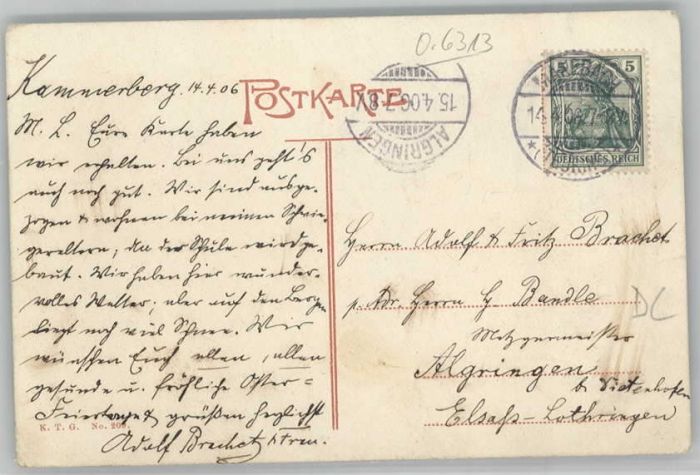 O.6313
Kammerberg. 14.4.06
POSTKARTE
ALGRINGEN
15.4.06. 7-8 V.
5 5
DEUTSCHES REICH
M. L. Eure Karte haben
wir erhalten. Bei uns geht's
auch noch gut. Wir sind ausge-
zogen & wohnen bei meinen Schwie-
gereltern, da der Schule wird ge-
baut. Wir haben hier wunder-
volles Wetter, aber auf den Bergen
liegt noch viel Schnee. Wir
wünschen Euch allen, allen
gesunde u. fröhliche Oster=
Feiertage & grüßen herzlichst
Adolf Brachet & Frau.
Herrn Adolf & Fritz Brachet
p. Adr. Herrn H. Bandle
Metzgermeister
Algringen
b. Dietenhofen
Elsaß-Lothringen
DC
K. T. G. No. 209.